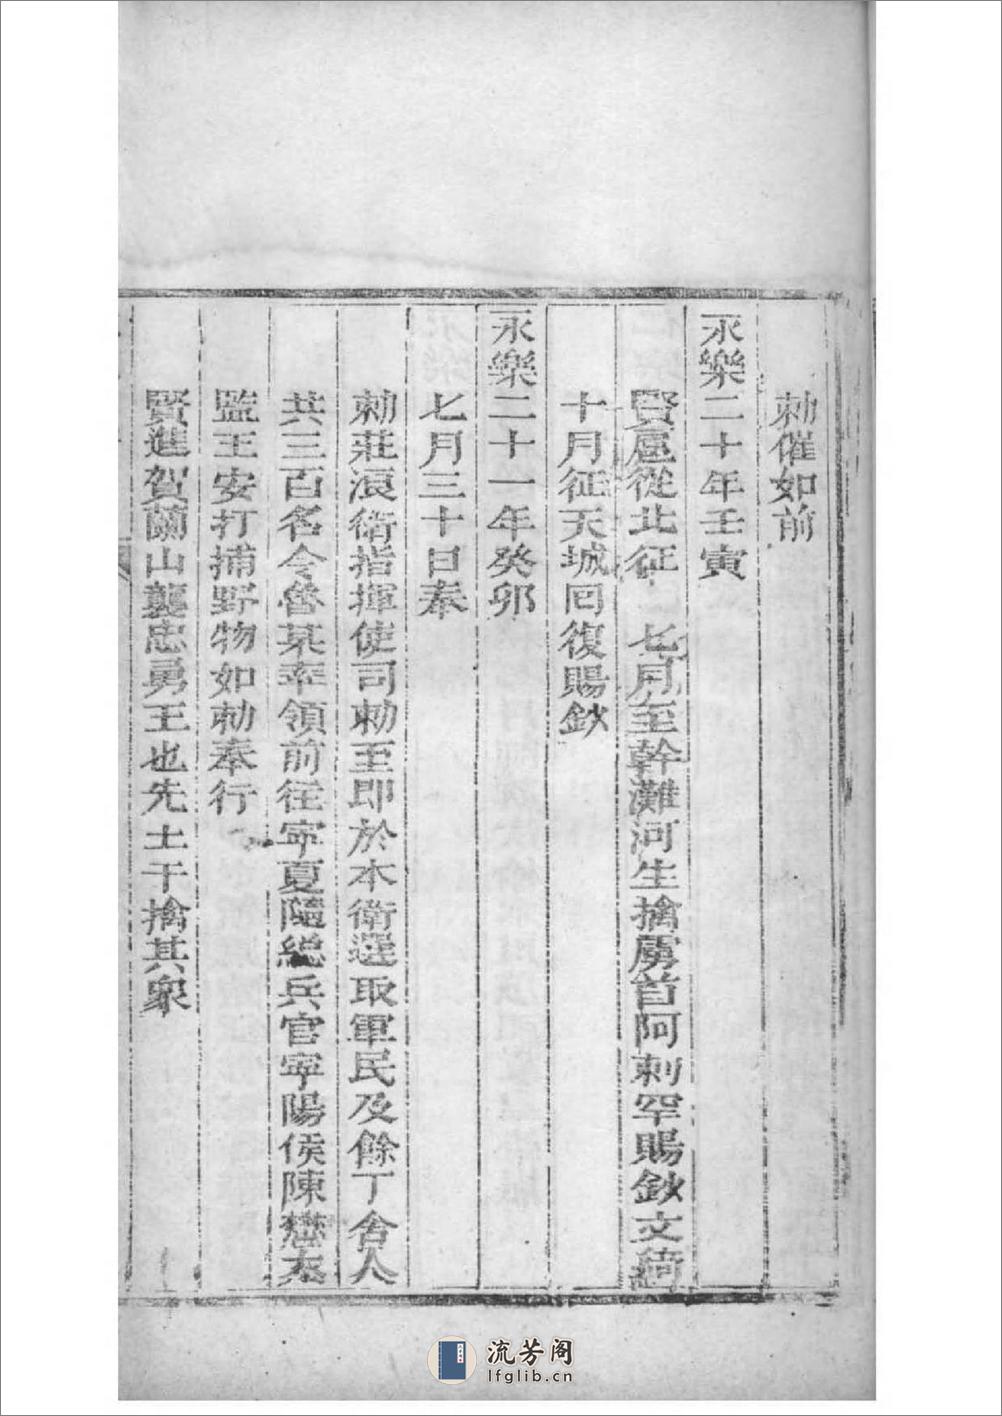 勑催如前
永樂二十年壬寅
賢扈從北征 七月至幹灘河生擒虜首阿剌罕賜鈔文綺
十月征天城囘復賜鈔
永樂二十一年癸卯
七月三十日奉
勑莊浪衛指揮使司勑至即於本衛選取軍民及餘丁舍人
共三百名令魯某率領前往寧夏隨総兵官寧陽侯陳懋太
監王安打捕野物如勑奉行
賢進賀蘭山襲忠勇王也先土干擒其衆
流芳阁
lfglib.cn